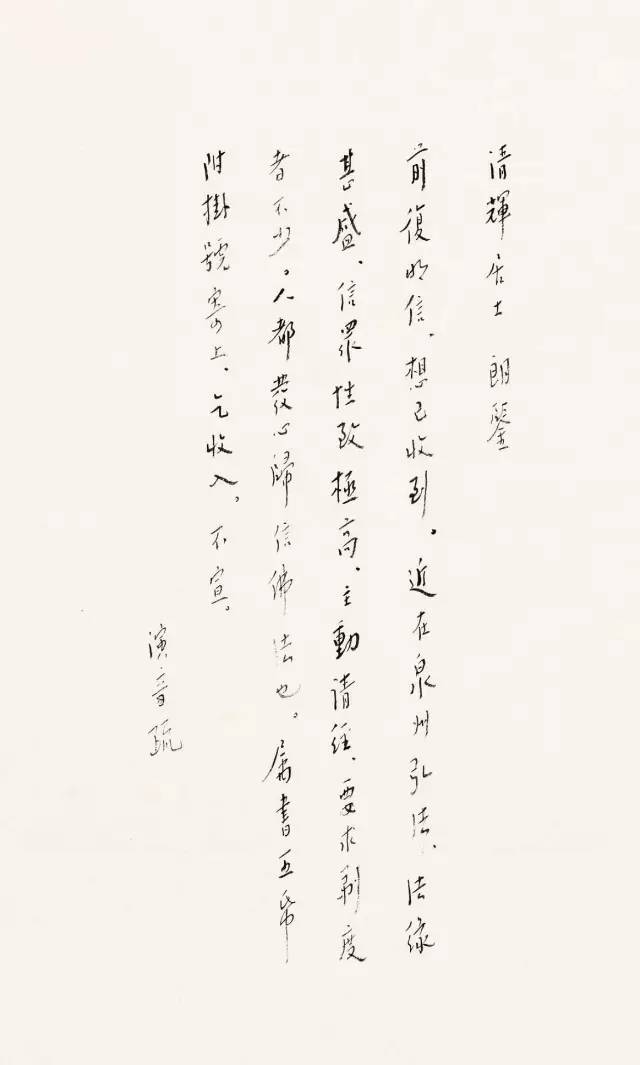 清輝居士 朗鑒
前復明信、想已收到。近在泉州弘法、法緣
甚盛、信眾性致極高、主動請經、要求剃度
者不少。人都發心歸信佛法也。屬書五帋
附掛號寄上、乞收入。不宣。
演音疏